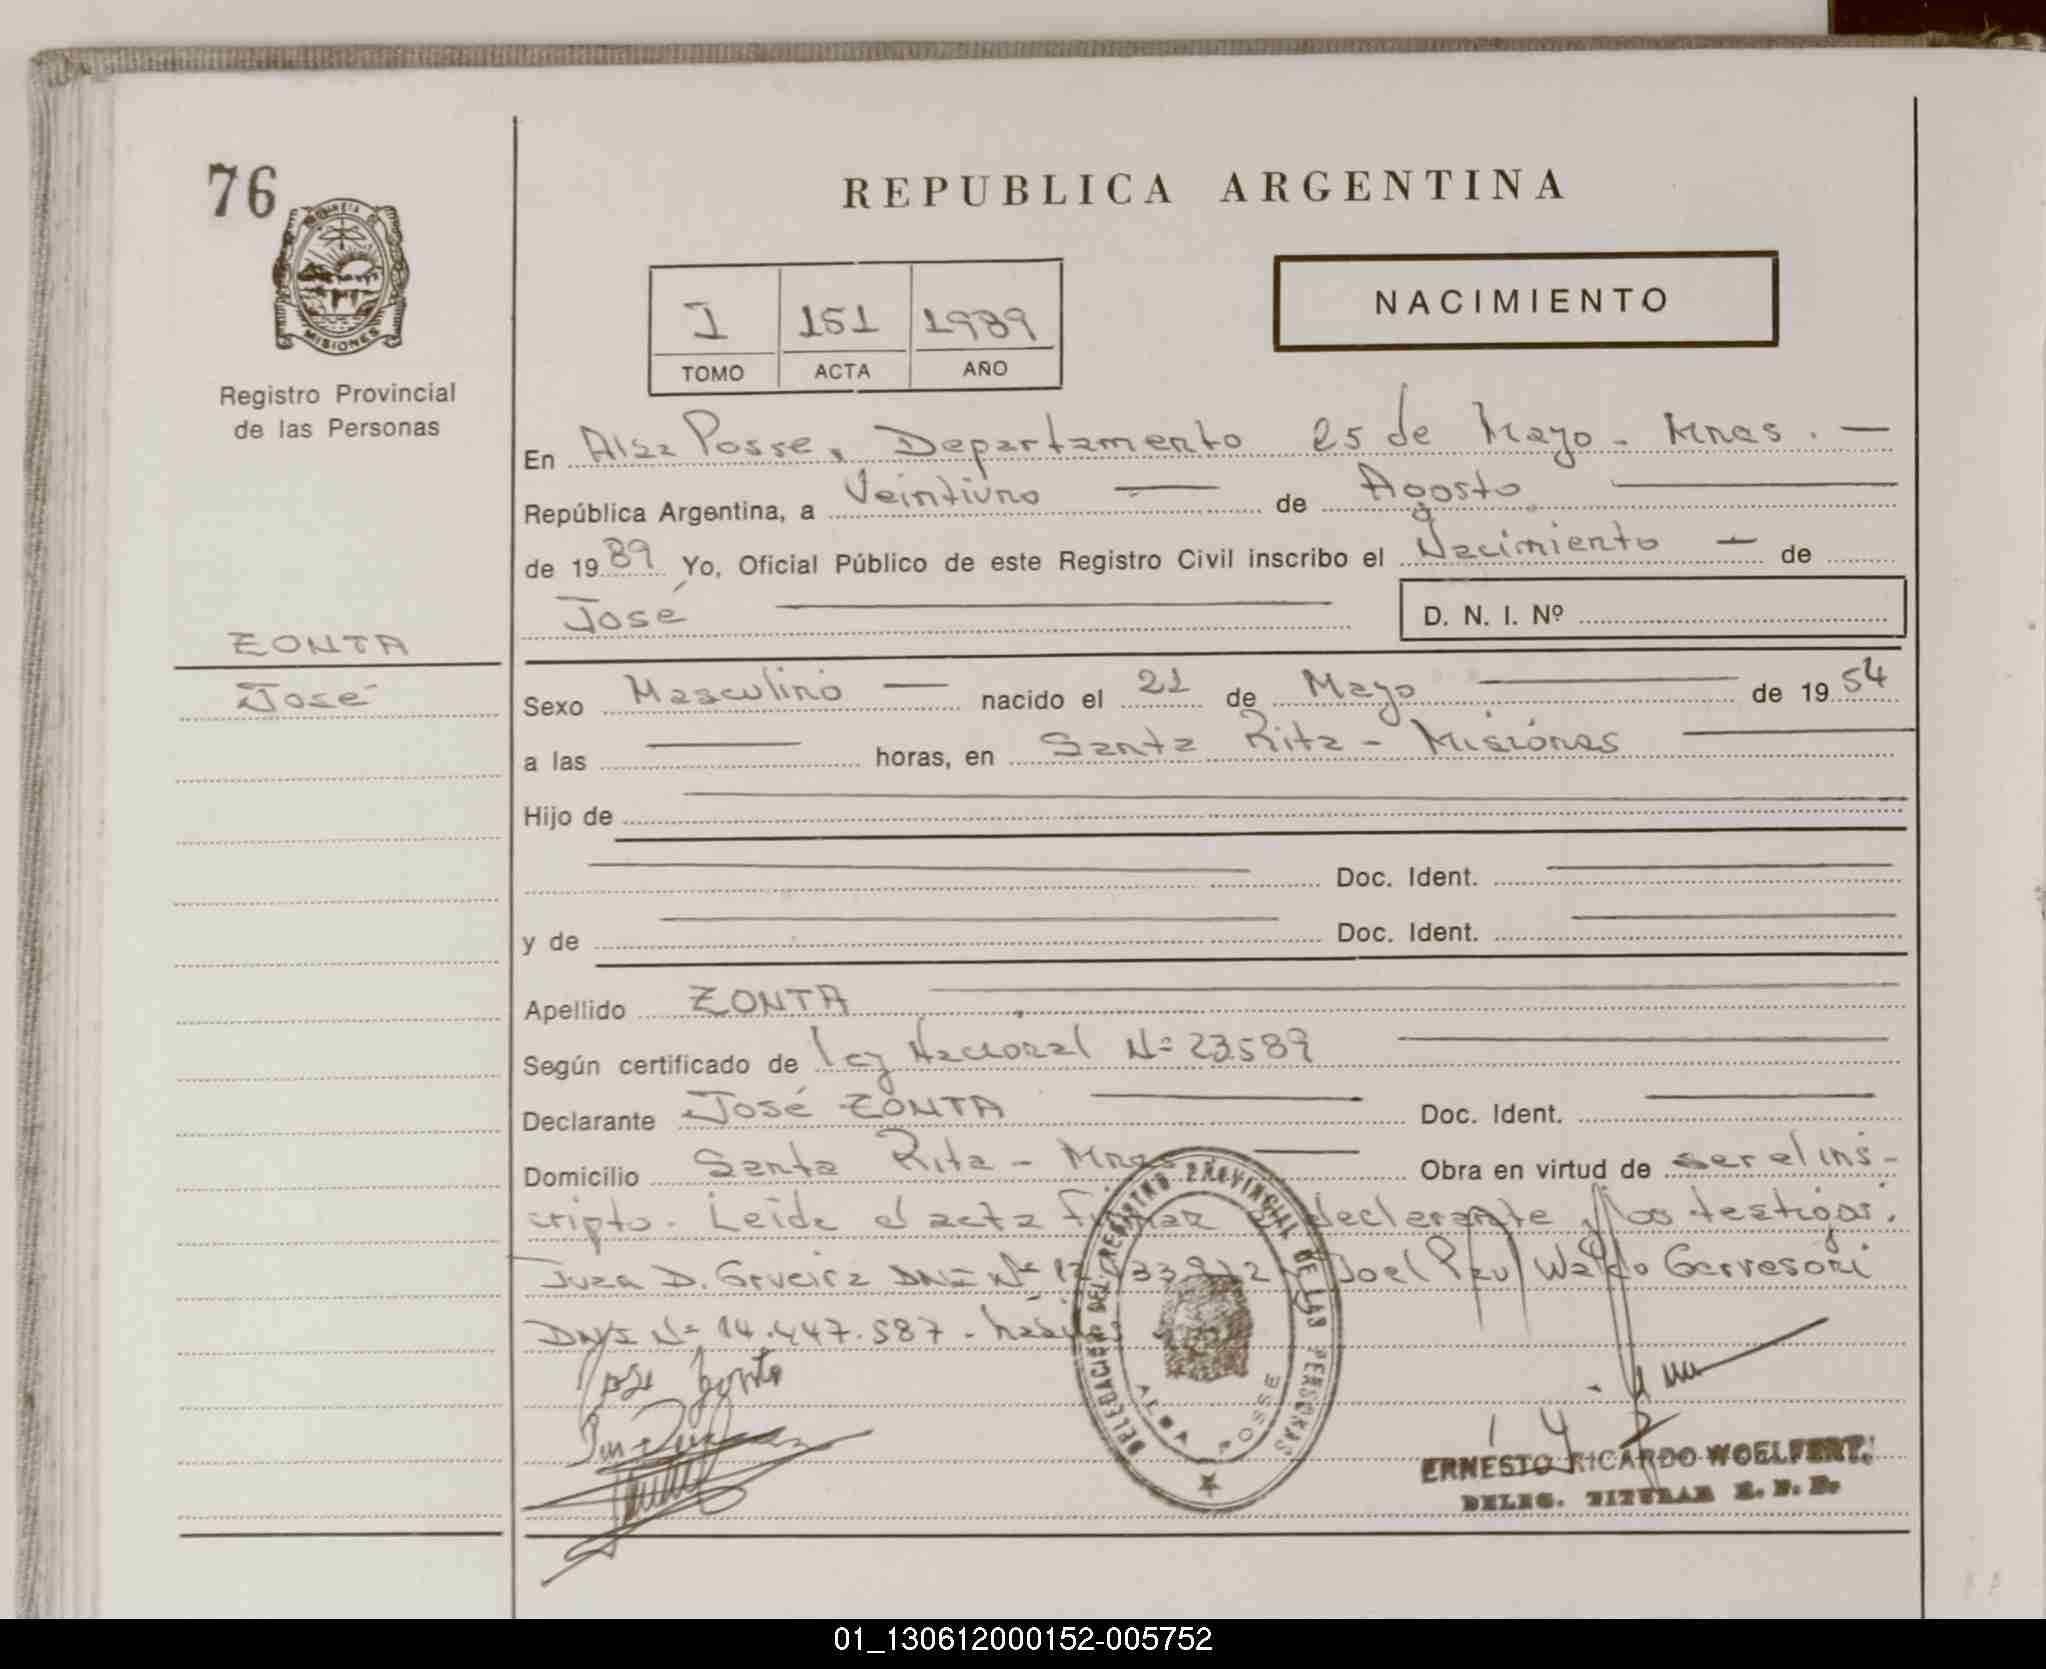 76
REPUBLICA ARGENTINA
PROVINCIA DE MISIONES
Registro Provincial
de las Personas
NACIMIENTO
I 151 1989
TOMO ACTA AÑO
En Alba Posse, Departamento 25 de Mayo - Mnes. —
República Argentina, a Veintiuno — de Agosto —
de 1989 Yo, Oficial Público de este Registro Civil inscribo el Nacimiento — de
José — D. N. I. Nº
ZONTA
José
Sexo Masculino — nacido el 21 de Mayo — de 1954
a las — horas, en Santa Rita - Misiones —
Hijo de —
— Doc. Ident. —
y de — Doc. Ident. —
Apellido ZONTA —
Según certificado de ley Nacional Nº 23589 —
Declarante José ZONTA — Doc. Ident. —
Domicilio Santa Rita - Mnes — Obra en virtud de ser el ins-
cripto. Leída el acta firman declarante los testigos:
D. DNI Nº Joel Waldo
DNI Nº 14.447.587 -
Jose Zonta
DELEGACION DEL REGISTRO PROVINCIAL DE LAS PERSONAS
ALBA POSSE
ERNESTO RICARDO WOELFERT
DELEG. TITULAR R. P. P.
01_130612000152-005752